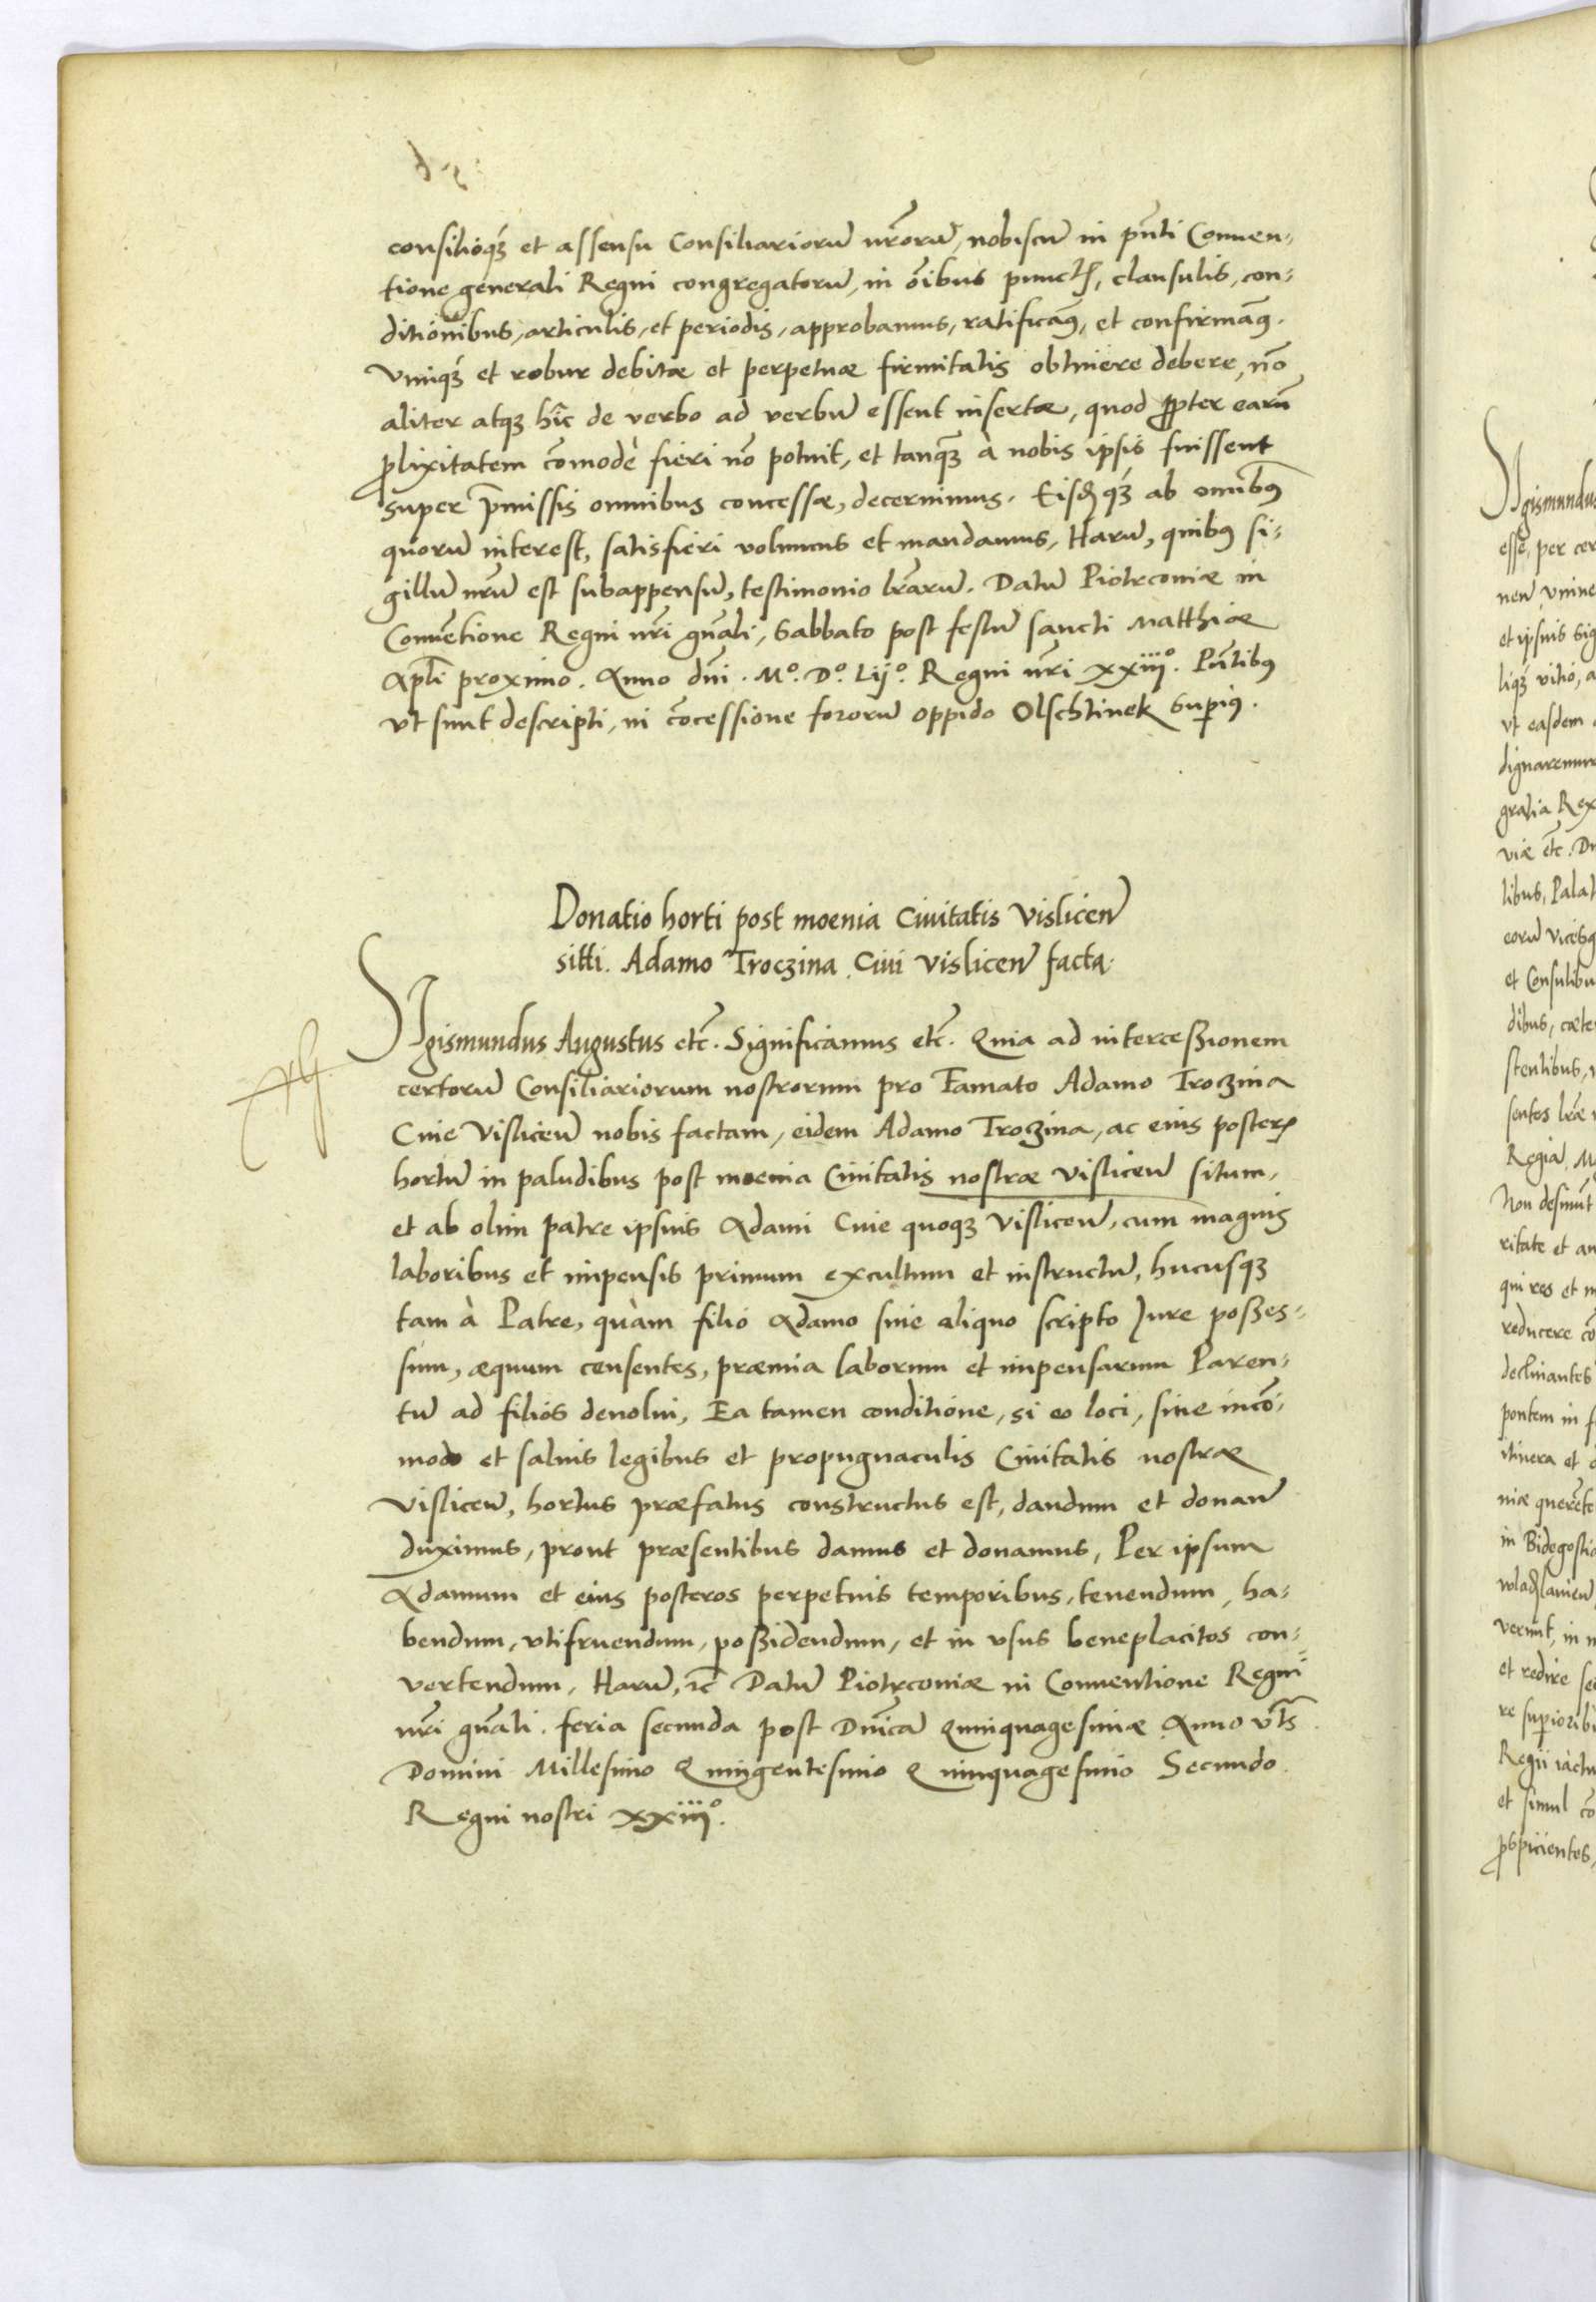 consilioq́ꝫ et assensu Consiliariorū nr̄orū, nobiscū in pn̄ti Conuen-
tione generali Regni congregatorū, in oībus punctꝭ, clausulis, con-
ditionibus, articulis, et periodis, approbamus, ratificam9, et confirmam9.
Vimq́ꝫ et robur debitæ et perpetuæ firmitatis obtinere debere, nō
aliter atqꝫ hîc de verbo ad verbū essent insertæ, quod ꝓpter earū
ꝓlixitatem cōmodè fieri nō potuit, et tanqꝫ à nobis ipsis fuissent
super p̄missis omnibus concessæ, decernimus. Eisdꝫ q́ꝫ ab omībus
quorū interest, satisfieri volumus et mandamus, Harū, quib9 si-
gillū nr̄m est subappensū, testimonio lr̄arū. Datū Piotrconiæ in
Conuētione Regni nr̄i gn̄ali, Sabbato post festū sancti Matthiæ
Apl̄i proximo. Anno dn̄i. Mº. Dº. Lijº. Regni nr̄i xxiiiº. Pn̄tib9
vt sunt descripti, in cōcessione fororū oppido Olschtinek Superi9.
Donatio horti post moenia Ciuitatis Vislicen̄
sitti. Adamo Troczina Ciui Vislicen̄ facta.
Sigismundus Augustus etc̄. Significamus etc̄. Quia ad intercessionem
certorū Consiliariorum nostrorum pro Famato Adamo Troczina
Ciue Vislicen̄ nobis factam, eidem Adamo Troczina, ac eius posterꝭ
hortū in paludibus post moenia Ciuitatis nostræ Vislicen̄ situm,
et ab olim patre ipsius Adami Ciue quoqꝫ Vislicen̄, cum magnis
laboribus et impensis primum excultum et instructū, hucusqꝫ
tam à Patre, quàm filio Adamo sine aliquo scripto Jure posses-
sum, æquum censentes, præmia laborum et impensarum Paren-
tū ad filios deuolui, Ea tamen conditione, si eo loci, sine incō-
modo et saluis legibus et propugnaculis Ciuitatis nostræ
Vislicen̄, hortus præfatus constructus est, dandum et donan̄
duximus, prout præsentibus damus et donamus, Per ipsum
Adamum et eius posteros perpetuis temporibus, tenendum, ha-
bendum, vtifruendum, possidendum, et in vsus beneplacitos con-
vertendum, Harū, ꝛc̄ Datū Piotrconiæ in Conuentione Regni
nr̄i gn̄ali. feria secunda post Dn̄icā Quinquagesimæ Anno
Domini Millesimo Quingentesimo Quinquagesimo Secundo.
Regni nostri xxiiiº.
Sigismundus
esse, per cer
et ipsius Sig
vt easdem
dignaremur
gratia Rex
viæ etc̄. Du
libus, Palat
et Consulibu
dibus, cæte
stentibus,
Regia M
Non desinūt
ritate et au
qui res et m
reducere cō
declinantes
pontem in f
itinera et
in Bidgostia
et redire se
et simul cō
ꝓspicientes,